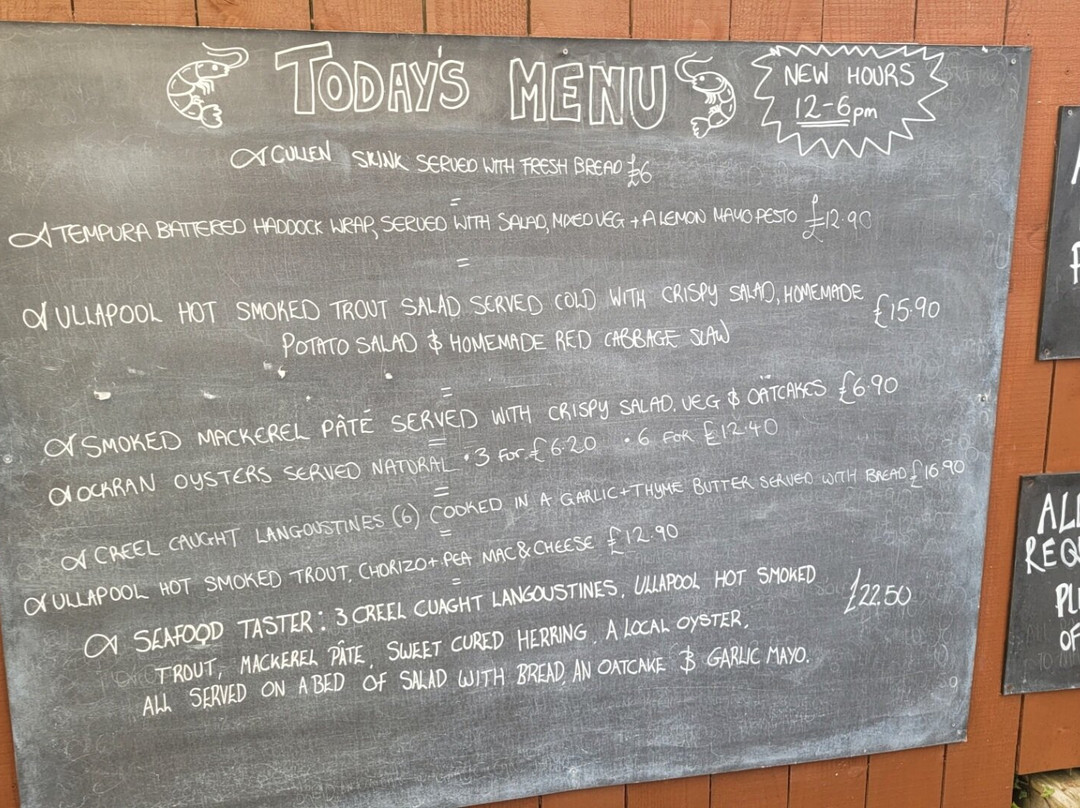 TODAY'S MENU
NEW HOURS
12-6pm
CULLEN SKINK SERVED WITH FRESH BREAD £6
=
TEMPURA BATTERED HADDOCK WRAP, SERVED WITH SALAD, MIXED VEG + A LEMON MAYO PESTO £12.90
=
ULLAPOOL HOT SMOKED TROUT SALAD SERVED COLD WITH CRISPY SALAD, HOMEMADE £15.90
POTATO SALAD & HOMEMADE RED CABBAGE SLAW
=
SMOKED MACKEREL PÂTÉ SERVED WITH CRISPY SALAD, VEG & OATCAKES £6.90
=
OCKRAN OYSTERS SERVED NATURAL • 3 FOR £6.20 • 6 FOR £12.40
=
CREEL CAUGHT LANGOUSTINES (6) COOKED IN A GARLIC + THYME BUTTER SERVED WITH BREAD £16.90
=
ULLAPOOL HOT SMOKED TROUT, CHORIZO + PEA MAC & CHEESE £12.90
=
SEAFOOD TASTER: 3 CREEL CUAGHT LANGOUSTINES, ULLAPOOL HOT SMOKED £22.50
TROUT, MACKEREL PÂTE, SWEET CURED HERRING, A LOCAL OYSTER,
ALL SERVED ON A BED OF SALAD WITH BREAD, AN OATCAKE & GARLIC MAYO.
ALL
REQU
PL
OF